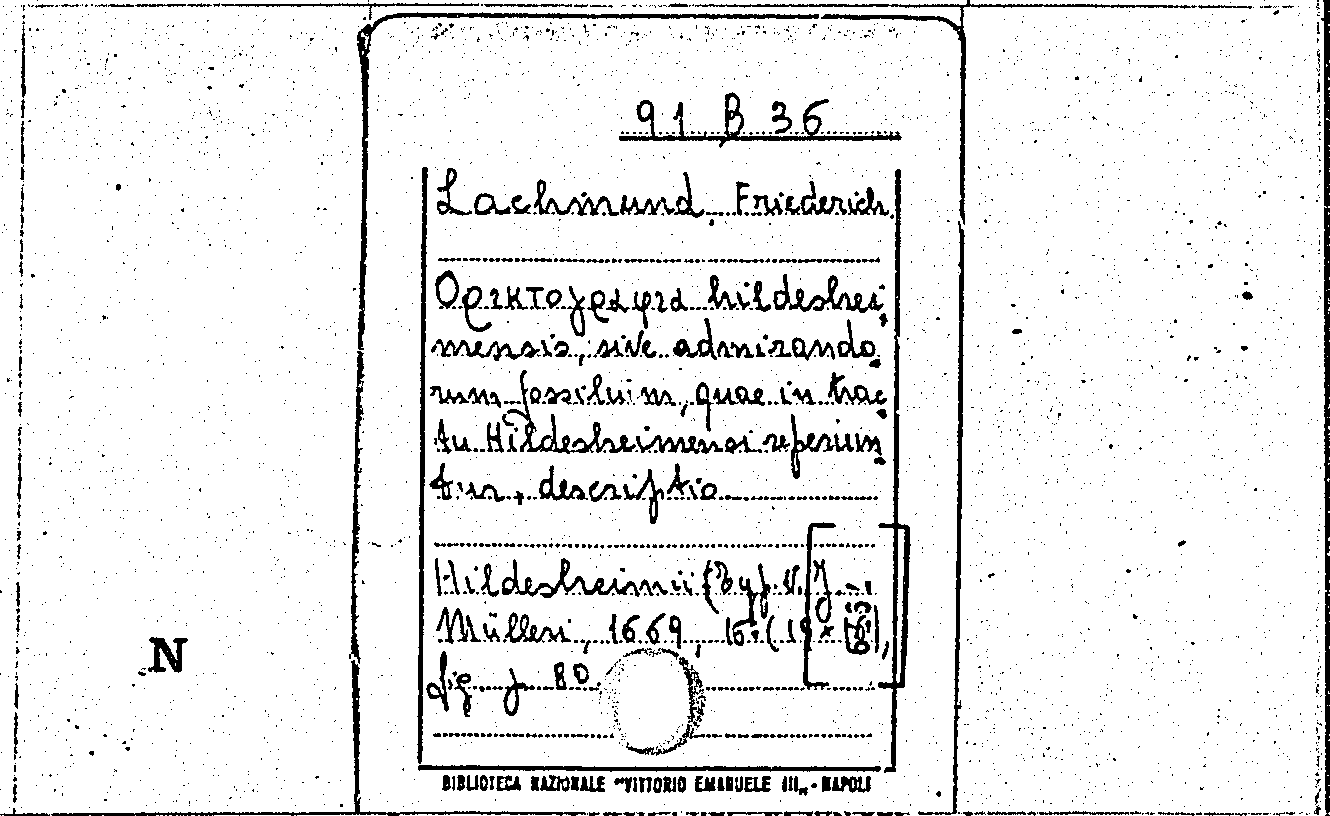 91 B 36
Lachmund, Friederich
Ορικτογραφια hildeshei,
mensis, sive admirando,
rum fossilium, quae in trac,
tu Hildesheimensi reperiun,
tur, descriptio
Hildesheimii (Typ. V. J.
Mülleri, 1669, 16° (19 x
fig p 80
N
BIBLIOTECA NAZIONALE "VITTORIO EMANUELE III„ - NAPOLI